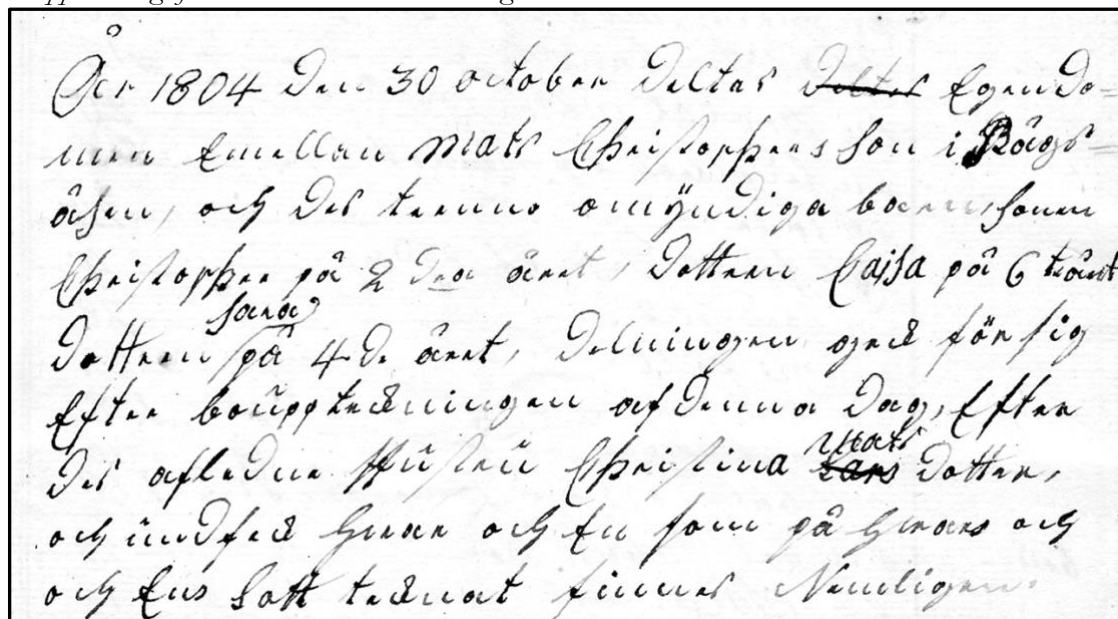 Åhr 1804 den 30 october deltes deltes Egendo=
men Emellan Mats Christophersson i Bågs=
åhsen, och des trenne omÿndiga barn, sonen
Christopher på 2 dra året, dottren Cajsa på 6 te året
Sara
dottren på 4 de året, delningen geck för sig
Efter bouppteckningen af denna dag, Efter
Mats
des afledne Hustru Christina Lars dotter,
och undfeck hvar och En som på hvars och
och Ens Lott tecknat finnes Nemligen.